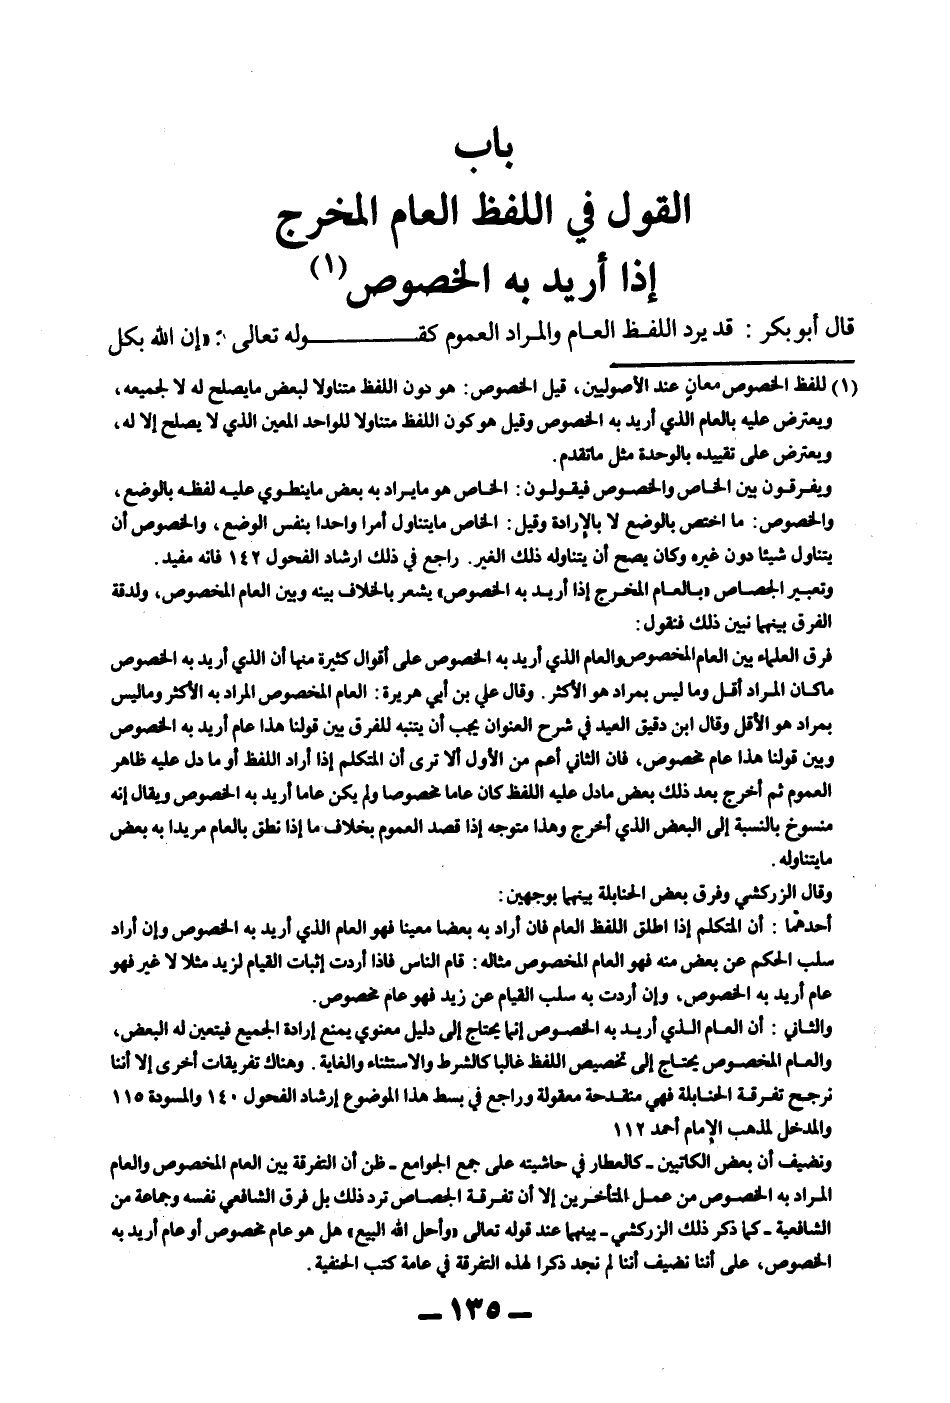 باب
القول في اللفظ العام المخرج
إذا أريد به الخصوص (١)
قال أبو بكر : قد يرد اللفظ العام والمراد العموم كقـــــــوله تعالى : «إن الله بكل
(١) للفظ الخصوص معانٍ عند الأصوليين، قيل الخصوص: هو دون اللفظ متناولا لبعض مايصلح له لا لجميعه،
ويعترض عليه بالعام الذي أريد به الخصوص وقيل هو كون اللفظ متناولا للواحد المعين الذي لا يصلح إلا له،
ويعترض على تقييده بالوحدة مثل ماتقدم.
ويفرقون بين الخاص والخصوص فيقولون: الخاص هو مايراد به بعض ماينطوي عليه لفظه بالوضع،
والخصوص: ما اختص بالوضع لا بالإرادة وقيل: الخاص مايتناول أمرا واحدا بنفس الوضع، والخصوص أن
يتناول شيئا دون غيره وكان يصح أن يتناوله ذلك الغير. راجع في ذلك ارشاد الفحول ١٤٢ فانه مفيد.
وتعبير الجصاص «بالعام المخرج إذا أريد به الخصوص» يشعر بالخلاف بينه وبين العام المخصوص، ولدقة
الفرق بينهما نبين ذلك فنقول:
فرق العلماء بين العام المخصوص والعام الذي أريد به الخصوص على أقوال كثيرة منها أن الذي أريد به الخصوص
ماكان المراد أقل وما ليس بمراد هو الأكثر. وقال علي بن أبي هريرة: العام المخصوص المراد به الأكثر وماليس
بمراد هو الأقل وقال ابن دقيق العيد في شرح العنوان يجب أن يتنبه للفرق بين قولنا هذا عام أريد به الخصوص
وبين قولنا هذا عام مخصوص، فان الثاني أعم من الأول ألا ترى أن المتكلم إذا أراد اللفظ أو ما دل عليه ظاهر
العموم ثم أخرج بعد ذلك بعض مادل عليه اللفظ كان عاما مخصوصا ولم يكن عاما أريد به الخصوص ويقال إنه
منسوخ بالنسبة إلى البعض الذي أخرج وهذا متوجه إذا قصد العموم بخلاف ما إذا نطق بالعام مريدا به بعض
مايتناوله.
وقال الزركشي وفرق بعض الحنابلة بينهما بوجهين:
أحدهما : أن المتكلم إذا اطلق اللفظ العام فان أراد به بعضا معينا فهو العام الذي أريد به الخصوص وإن أراد
سلب الحكم عن بعض منه فهو العام المخصوص مثاله: قام الناس فاذا أردت إثبات القيام لزيد مثلا لا غير فهو
عام أريد به الخصوص، وإن أردت به سلب القيام عن زيد فهو عام مخصوص.
والثاني : أن العام الذي أريد به الخصوص إنما يحتاج إلى دليل معنوي يمنع إرادة الجميع فيتعين له البعض،
والعام المخصوص يحتاج إلى تخصيص اللفظ غالبا كالشرط والاستثناء والغاية. وهناك تفريقات أخرى إلا أننا
نرجح تفرقة الحنابلة فهي منقدحة معقولة وراجع في بسط هذا الموضوع إرشاد الفحول ١٤٠ والمسودة ١١٥
والمدخل لمذهب الإمام أحمد ١١٢
ونضيف أن بعض الكاتبين ـ كالعطار في حاشيته على جمع الجوامع ـ ظن أن التفرقة بين العام المخصوص والعام
المراد به الخصوص من عمل المتأخرين إلا أن تفرقة الجصاص ترد ذلك بل فرق الشافعي نفسه وجماعة من
الشافعية ـ كما ذكر ذلك الزركشي ـ بينهما عند قوله تعالى «وأحل الله البيع» هل هو عام مخصوص أو عام أريد به
الخصوص، على أننا نضيف أننا لم نجد ذكرا لهذه التفرقة في عامة كتب الحنفية.
ـ ١٣٥ ـ